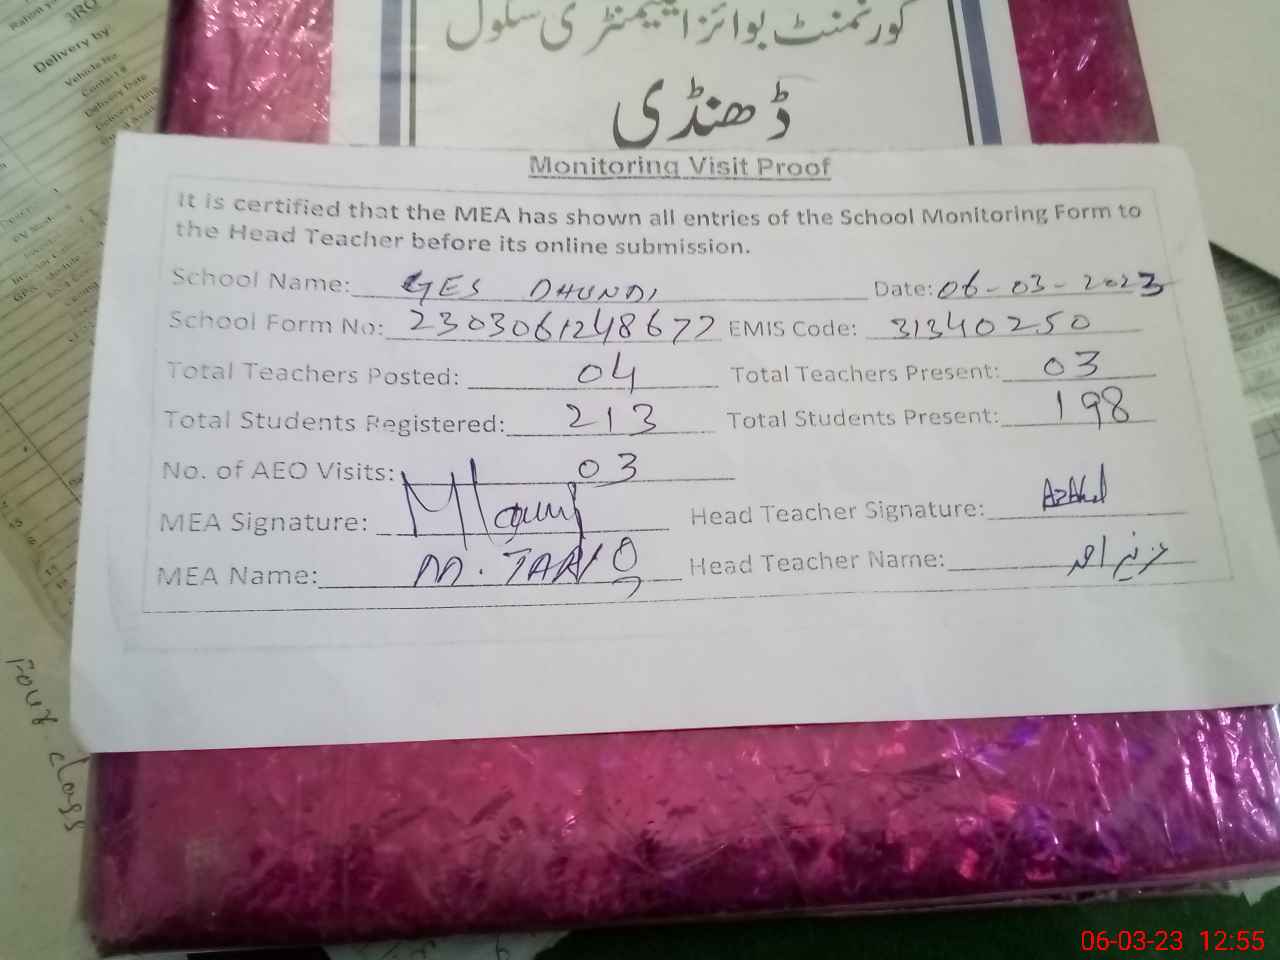 3RO
Delivery by
Vehicle No
Contact #
Delivery Date
Delivery Time
گورنمنٹ بوائز ایلیمنٹری سکول
ڈھنڈی
Monitoring Visit Proof
It is certified that the MEA has shown all entries of the School Monitoring Form to
the Head Teacher before its online submission.
School Name: GES DHUNDI Date: 06-03-2023
School Form No: 2303061248672 EMIS Code: 31340250
Total Teachers Posted: 04 Total Teachers Present: 03
Total Students Registered: 213 Total Students Present: 198
No. of AEO Visits: 03
MEA Signature: Head Teacher Signature:
MEA Name: M. TARIQ Head Teacher Name: عزیز احمد
Four class
06-03-23 12:55